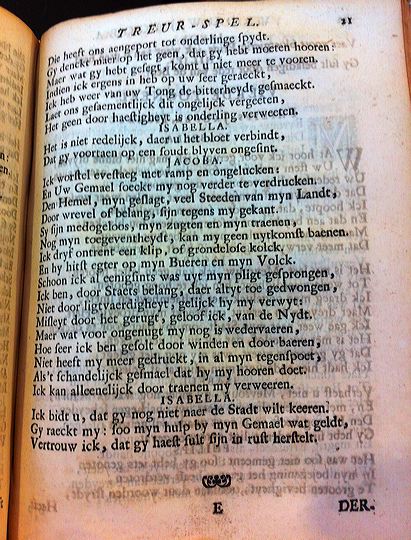 TREUR-SPEL. 21
Die heeft ons aengeport tot onderlinge spydt.
Gy denckt maer op het geen, dat gy hebt moeten hooren:
Maer wat gy hebt gesegt, komt u niet meer te vooren.
Indien ick ergens in heb op uw seer geraeckt,
Ick heb weer van uw Tong de bitterheydt gesmaeckt.
Laet ons gesaementlijck dit ongelijck vergeeten,
Het geen door haestigheyt is onderling verweeten.
ISABELLA.
Het is niet redelijck, daer u het bloet verbindt,
Dat gy voortaen op een foudt blyven ongesint.
JACOBA.
Ick worstel evestaeg met ramp en ongelucken:
En Uw Gemael soeckt my nog verder te verdrucken.
Den Hemel, myn geslagt, veel Steeden van myn Landt,
Door wrevel of belang, sijn tegens my gekant.
Sy sijn medogeloos, myn zugten en myn traenen,
Nog myn toegeventheydt, kan my geen uytkomst baenen.
Ick dryf ontrent een klip, of grondelose kolck.
En hy hitst egter op myn Bueren en myn Volck.
Schoon ick al eenigsints was uyt myn pligt gesprongen,
Ick ben, door Staets belang, daer altyt toe gedwongen,
Niet door ligtvaerdigheyt, gelijck hy my verwyt:
Misleyt door het gerugt, geloof ick, van de Nydt.
Maer wat voor ongenugt my nog is wedervaeren,
Hoe seer ick ben gesolt door winden en door baeren,
Niet heeft my meer gedruckt, in al myn tegenspoet,
Als't schandelijck gesmael dat hy my hooren doet.
Ick kan alleenelijck door traenen my verweeren.
ISABELLA.
Ick bidt u, dat gy nog niet naer de Stadt wilt keeren.
Gy raeckt my: soo myn hulp by myn Gemael wat geldt,
Vertrouw ick, dat gy haest sult sijn in rust herstelt.
E DER-